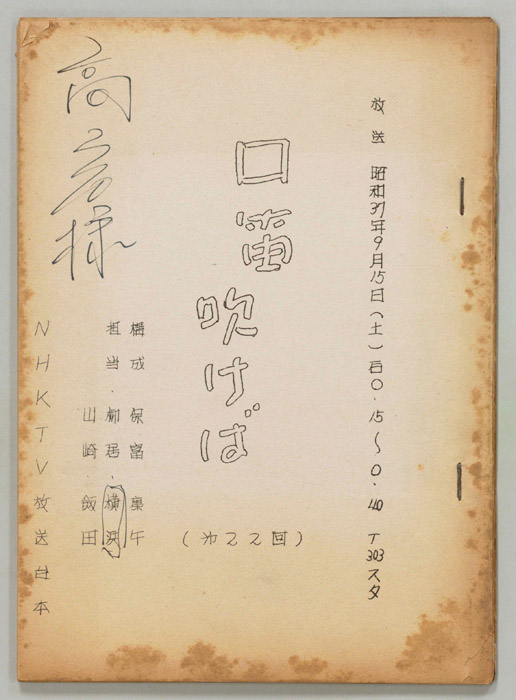 放送 昭和37年9月15日(土)后0.15~0.40 T303スタ
口笛
吹けば
(才22回)
構成 保富康午
担当.柳居.横浜
山崎.飯田
NHKTV放送台本
高
様